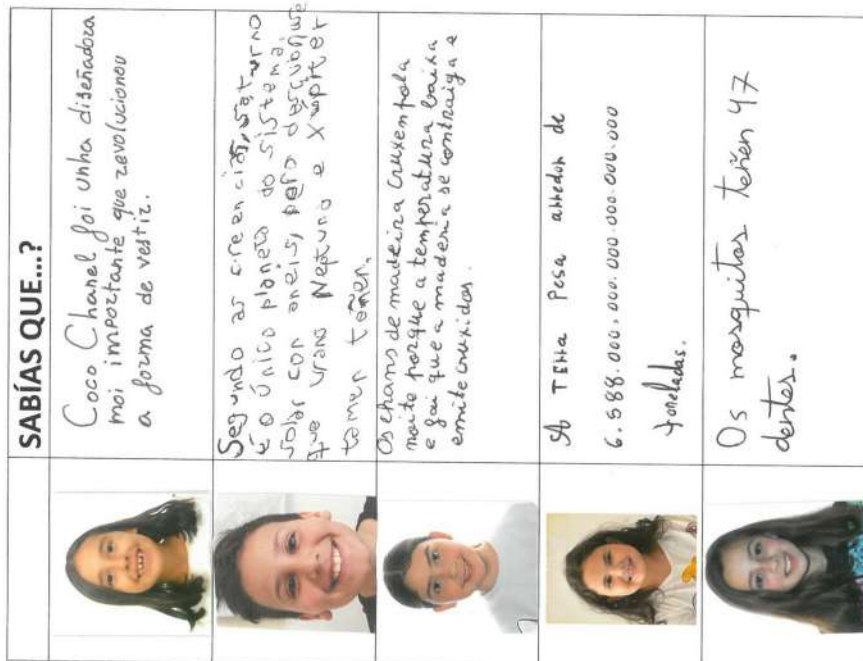 SABÍAS QUE...?
Coco Chanel foi unha diseñadora
moi importante que revolucionou
a forma de vestir.
Segundo as creencias, Saturno
é o único planeta do sistema
solar con aneis, pero descubriuse
que Urano Neptuno e Xúpiter
tamén teñen.
Os chans de madeira cruxen pola
noite porque a temperatura baixa
e fai que a madeira se contraiga e
emite cruxidos.
A Terra pesa arredor de
6.588.000.000.000.000.000.000
toneladas.
Os mosquitos teñen 47
dentes.